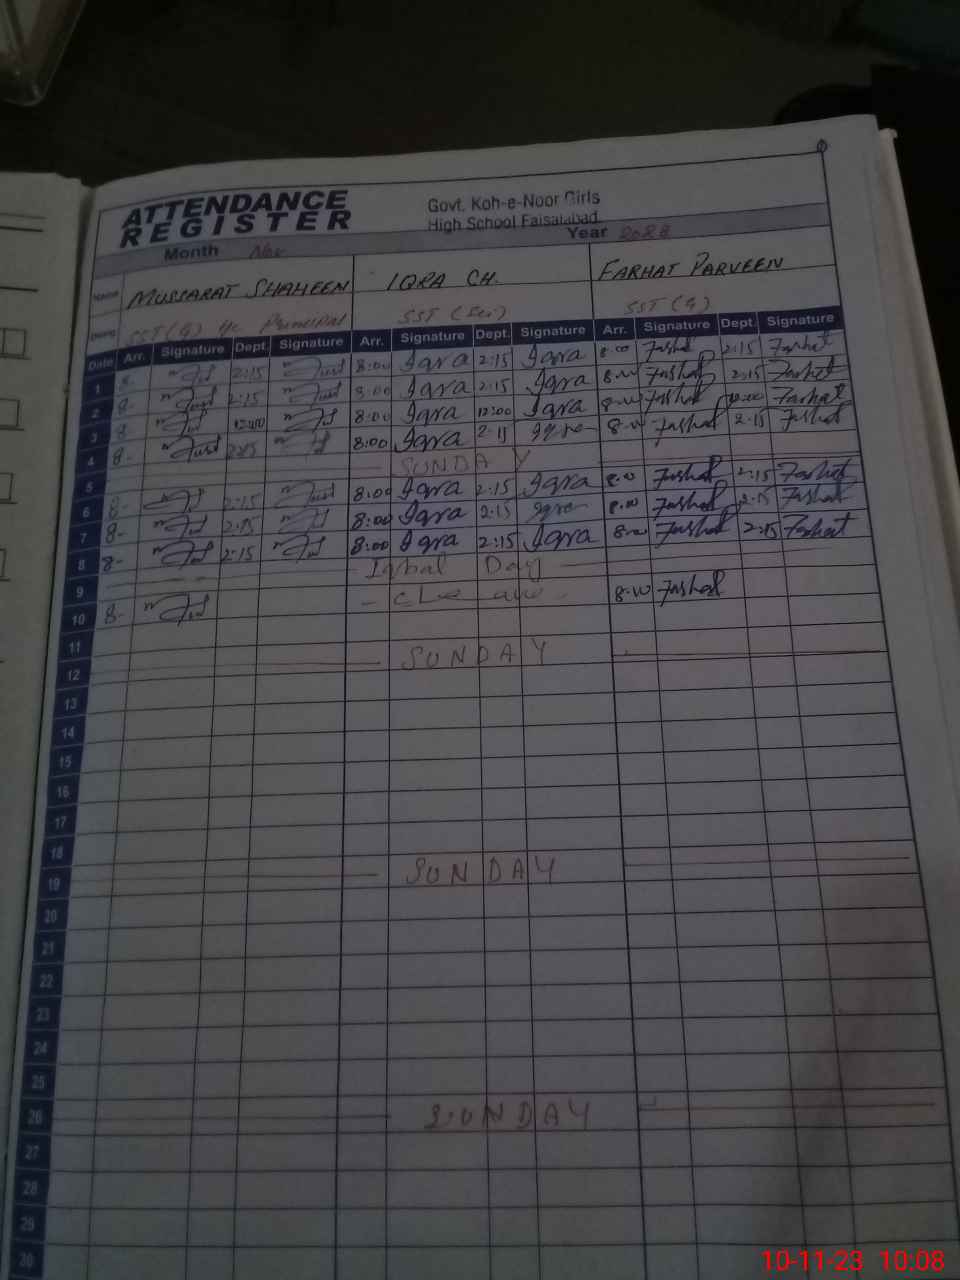 ATTENDANCE REGISTER
Govt. Koh-e-Noor Girls
High School Faisalabad
Month Nov Year 2023
Name MUSSARAT SHAHEEN IQRA CH. FARHAT PARVEEN
Desig SST (G) I/c Principal SST (Sci) SST (G)
Date Arr. Signature Dept. Signature Arr. Signature Dept. Signature Arr. Signature Dept. Signature
1 8- 2:15 8:00 Iqra 2:15 Iqra 8:00 Farhat 2:15 Farhat
2 8- 2:15 8:00 Iqra 2:15 Iqra 8:00 Farhat 2:15 Farhat
3 8- 12:00 8:00 Iqra 12:00 Iqra 8:00 Farhat 12:00 Farhat
4 8- 2:15 8:00 Iqra 2:15 Iqra 8:00 Farhat 2:15 Farhat
5 SUNDAY
6 8- 2:15 8:00 Iqra 2:15 Iqra 8:00 Farhat 2:15 Farhat
7 8- 2:15 8:00 Iqra 2:15 Iqra 8:00 Farhat 2:15 Farhat
8 8- 2:15 8:00 Iqra 2:15 Iqra 8:00 Farhat 2:15 Farhat
9 Iqbal Day
10 8- 8:00 Farhat
11
12 SUNDAY
13
14
15
16
17
18
19 SUNDAY
20
21
22
23
24
25
26 SUNDAY
27
28
29
30
10-11-23 10:08